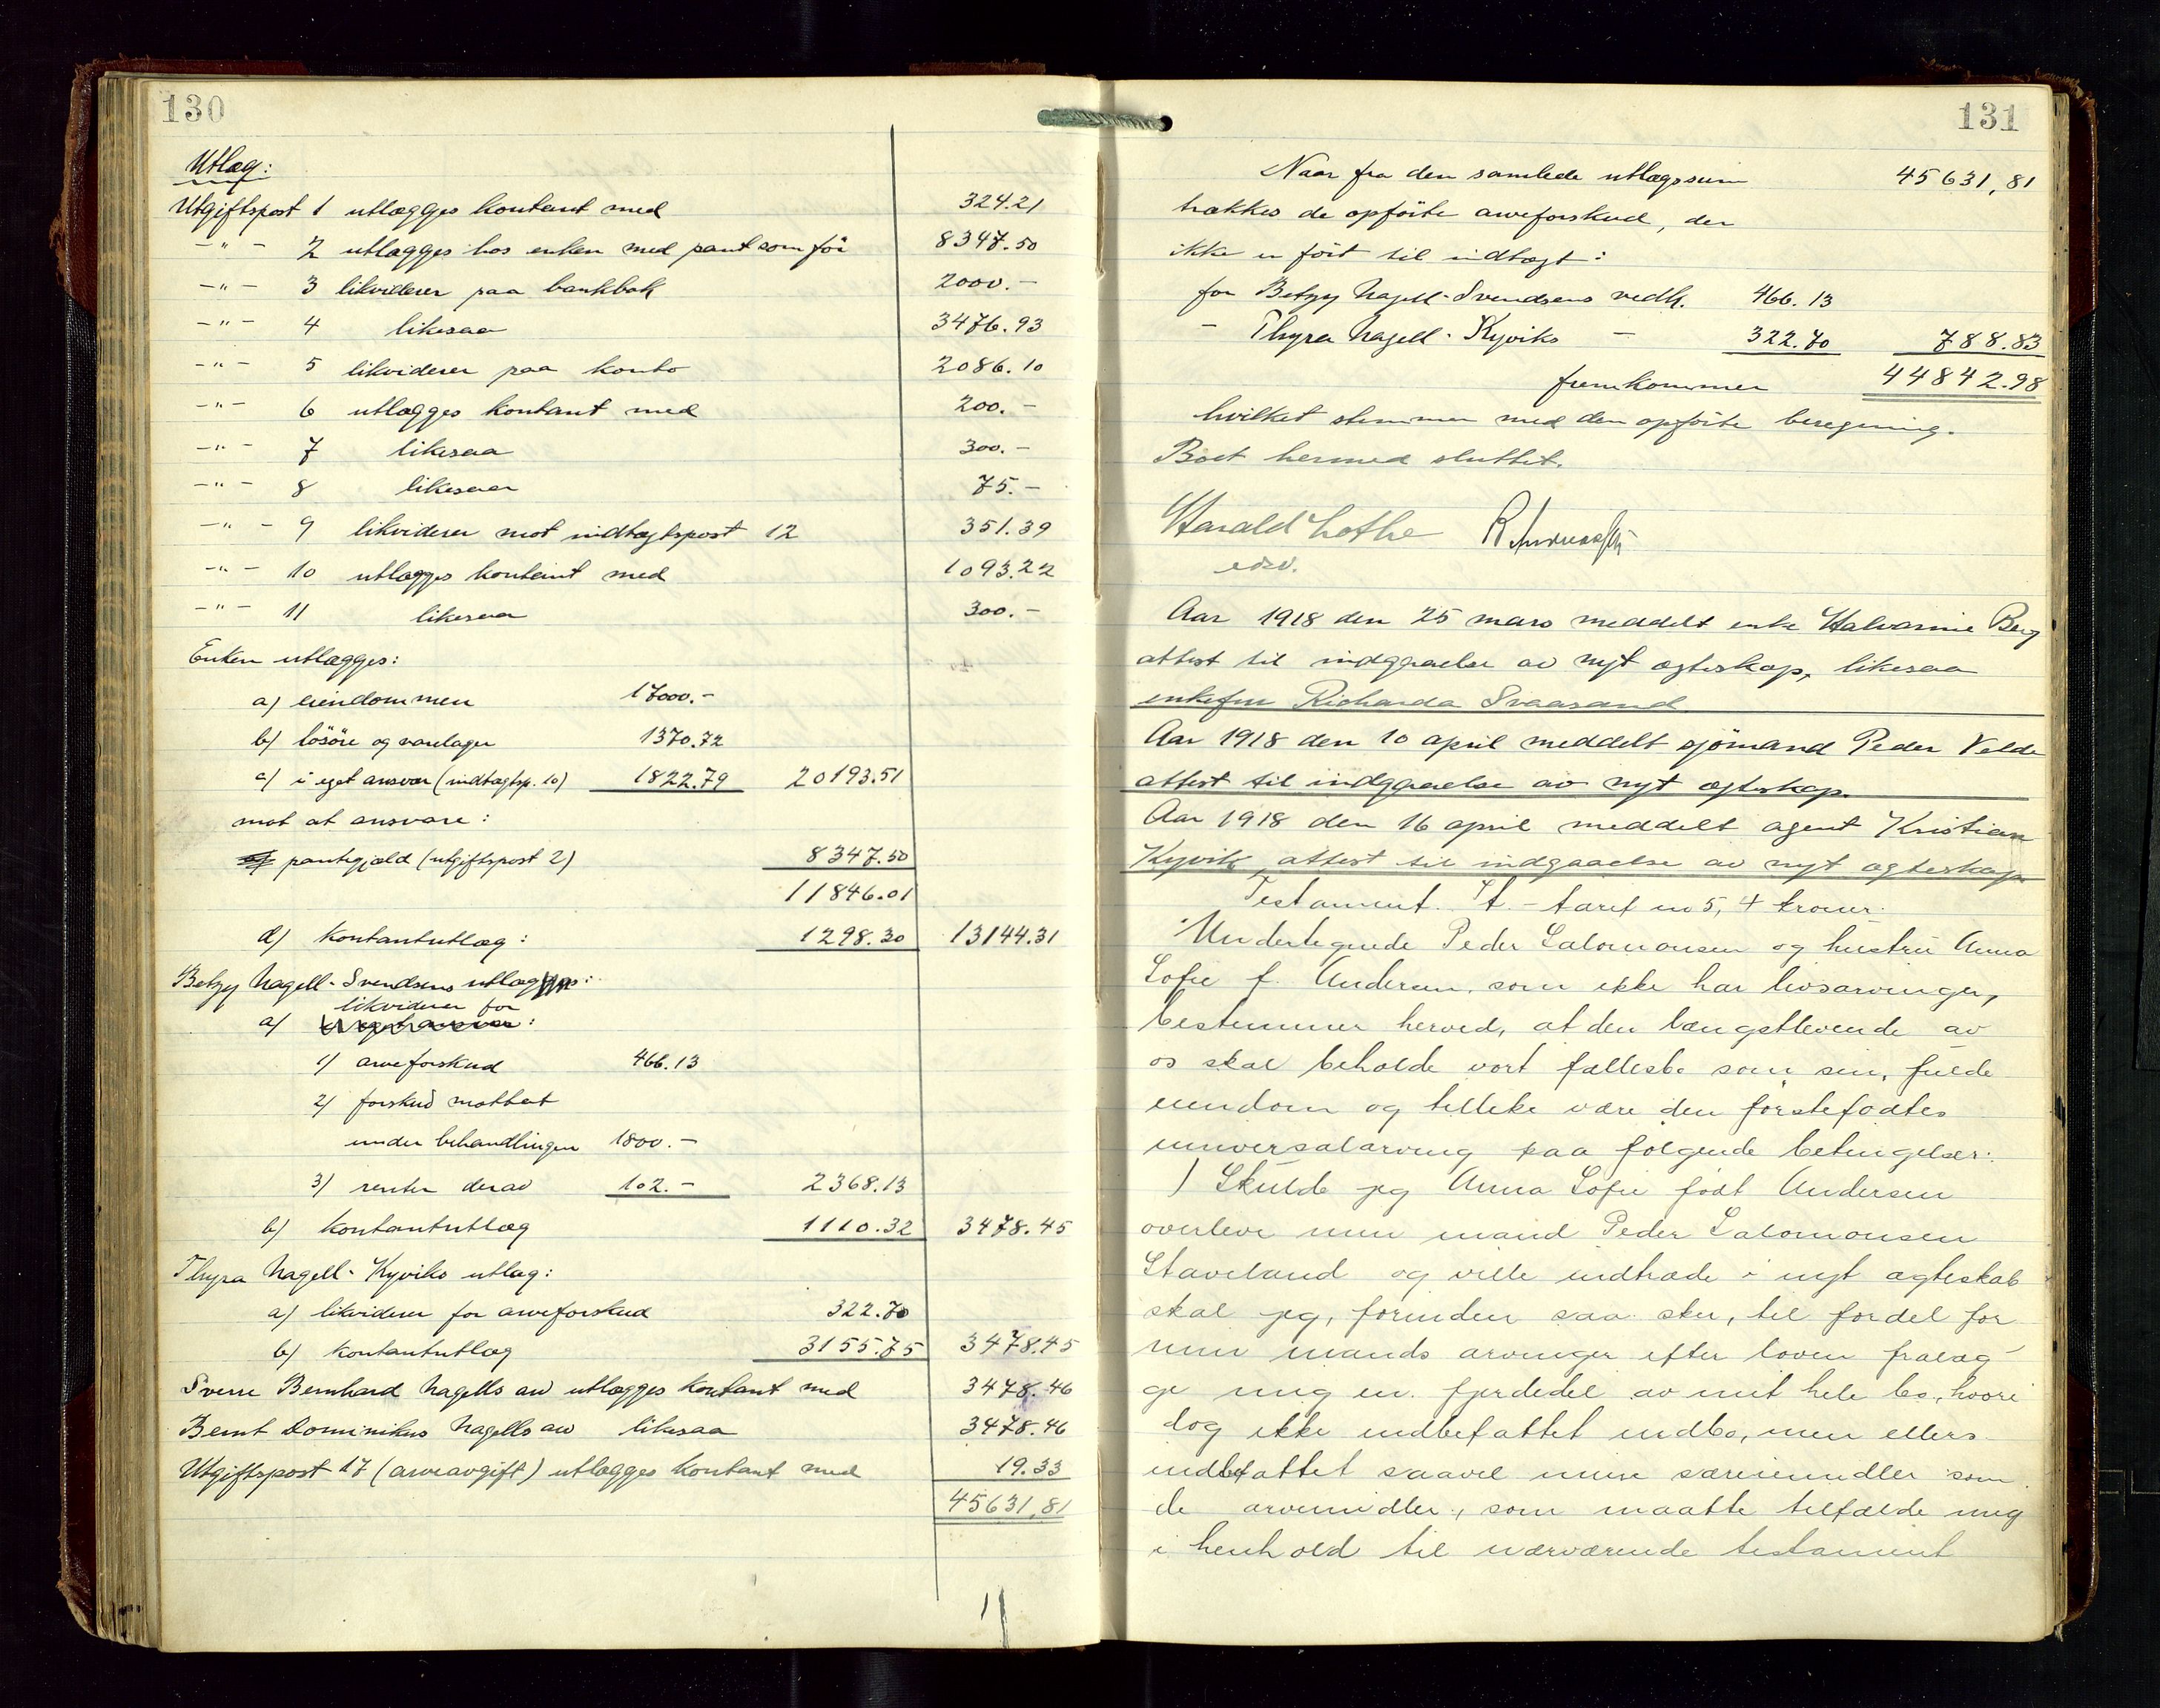 130
Utlæg:
Utgiftspost 1 utlægges kontant med 324.21
-"- 2 utlægges hos enken med pant som för 8347.50
-"- 3 likviderer paa bankbok 2000.-
-"- 4 likesaa 3476.93
-"- 5 likviderer paa konto 2086.10
-"- 6 utlægges kontant med 200.-
-"- 7 likesaa 300.-
-"- 8 likesaa 75.-
-"- 9 likviderer mot indtægtspost 12 351.39
-"- 10 utlægges kontant med 1093.22
-"- 11 likesaa 300.-
Enken utlægges:
a) eiendommen 17000.-
b) lösöre og varelager 1370.72
c) i eget ansvar (indtægtsp. 10) 1822.79 20193.51
mot at ansvare:
pantegjæld (utgiftspost 2) 8347.50
11846.01
d) kontantutlæg: 1298.30 13144.31
Betzy Nagell-Svendsens utlæg:
likviderer for
a) i eget ansvar:
1) arveforskud 466.13
2) forskud mottat
under behandlingen 1800.-
3) renter derav 102.- 2368.13
b) kontantutlæg 1110.32 3478.45
Thyra Nagell-Kyviks utlæg:
a) likviderer for arveforskud 322.70
b) kontantutlæg 3155.75 3478.45
Sverre Bernhard Nagells arv utlægges kontant med 3478.46
Bernt Dominikus Nagells arv likesaa 3478.46
Utgiftspost 17 (arveavgift) utlægges kontant med 19.33
45631,81
131
Naar fra den samlede utlægssum 45631,81
trækkes de opförte arveforskud, der
ikke er fört til indtægt:
for Betzy Nagell-Svendsens vedk. 466.13
- Thyra Nagell-Kyviks - 322.70 788.83
fremkommer 44842.98
hvilket stemmer med den opförte beregning.
Boet hermed sluttet.
Harald Lothe
edsv.
Aar 1918 den 25 mars meddelt enke Halvarine Berg
attest til indgaaelse av nyt egteskap, likesaa
enkefru Richarda Svaasand
Aar 1918 den 10 april meddelt sjömand Peder Velde
attest til indgaaelse av nyt egteskap.
Aar 1918 den 16 april meddelt agent Kristian
Kyvik attest til indgaaelse av nyt egteskap
Testament. St. - taxt no 5, 4 kroner.
Undertegnede Peder Salomonsen og hustru Anna
Sofie f. Andersen, som ikke har livsarvinger,
bestemmer herved, at den længstlevende av
os skal beholde vort fællesbo som sin fulde
eiendom og tillike være den förstefödtes
universalarving paa følgende betingelser:
1) Skulde jeg Anna Sofie født Andersen
overleve min mand Peder Salomonsen
Staveland og ville indtræde i nyt ægteskab
skal jeg, forinden saa sker, til fordel for
min mands arvinger efter loven fralæg-
ge mig en fjerdedel av mit hele bo, hvori
dog ikke indbefattet indbo, men ellers
indbefattet saavel mine særeiemidler som
de arvemidler, som maatte tilfalde mig
i henhold til nærværende testament